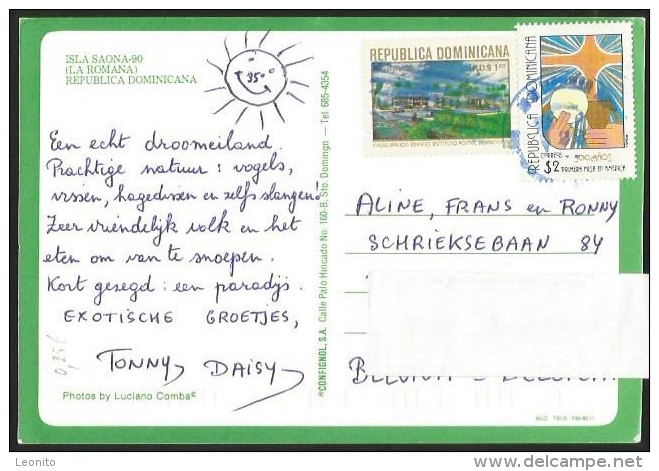 ISLA SAONA-90
(LA ROMANA)
REPUBLICA DOMINICANA
35°
Een echt droomeiland.
Prachtige natuur: vogels,
vissen, hagedissen en zelfs slangen!
Zeer vriendelijk volk en het
eten om van te snoepen.
Kort gezegd: een paradijs.
EXOTISCHE GROETJES,
TONNY DAISY
0,25€
Photos by Luciano Comba©
©CONFIGNOL, S.A. Calle Palo Hincado No. 160-B, Sto. Domingo — Tel. 685-4354
REPUBLICA DOMINICANA
RD$1.00
REPUBLICA DOMINICANA
CORREOS
$2 PRIMERA MISA EN AMERICA
ALINE, FRANS en RONNY
SCHRIEKSEBAAN 84
Leonito
www.delcampe.net